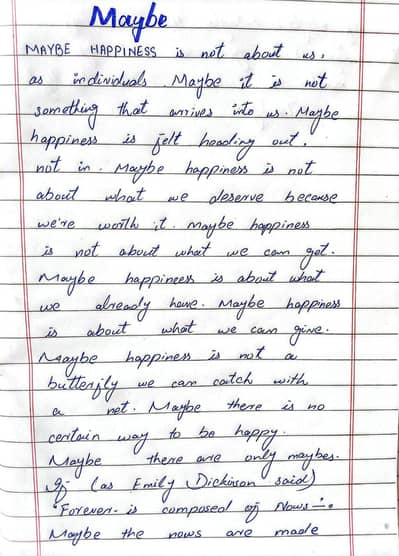 Maybe
MAYBE HAPPINESS is not about us,
as individuals. Maybe it is not
something that arrives into us. Maybe
happiness is felt heading out.
not in. Maybe happiness is not
about what we deserve because
we're worth it. maybe happiness
is not about what we can get.
Maybe happiness is about what
we already have. Maybe happiness
is about what we can give.
Maybe happiness is not a
butterfly we can catch with
a net. Maybe there is no
certain way to be happy.
Maybe there are only maybes.
If (as Emily Dickinson said)
"Forever- is composed of Nows-".
Maybe the nows are made